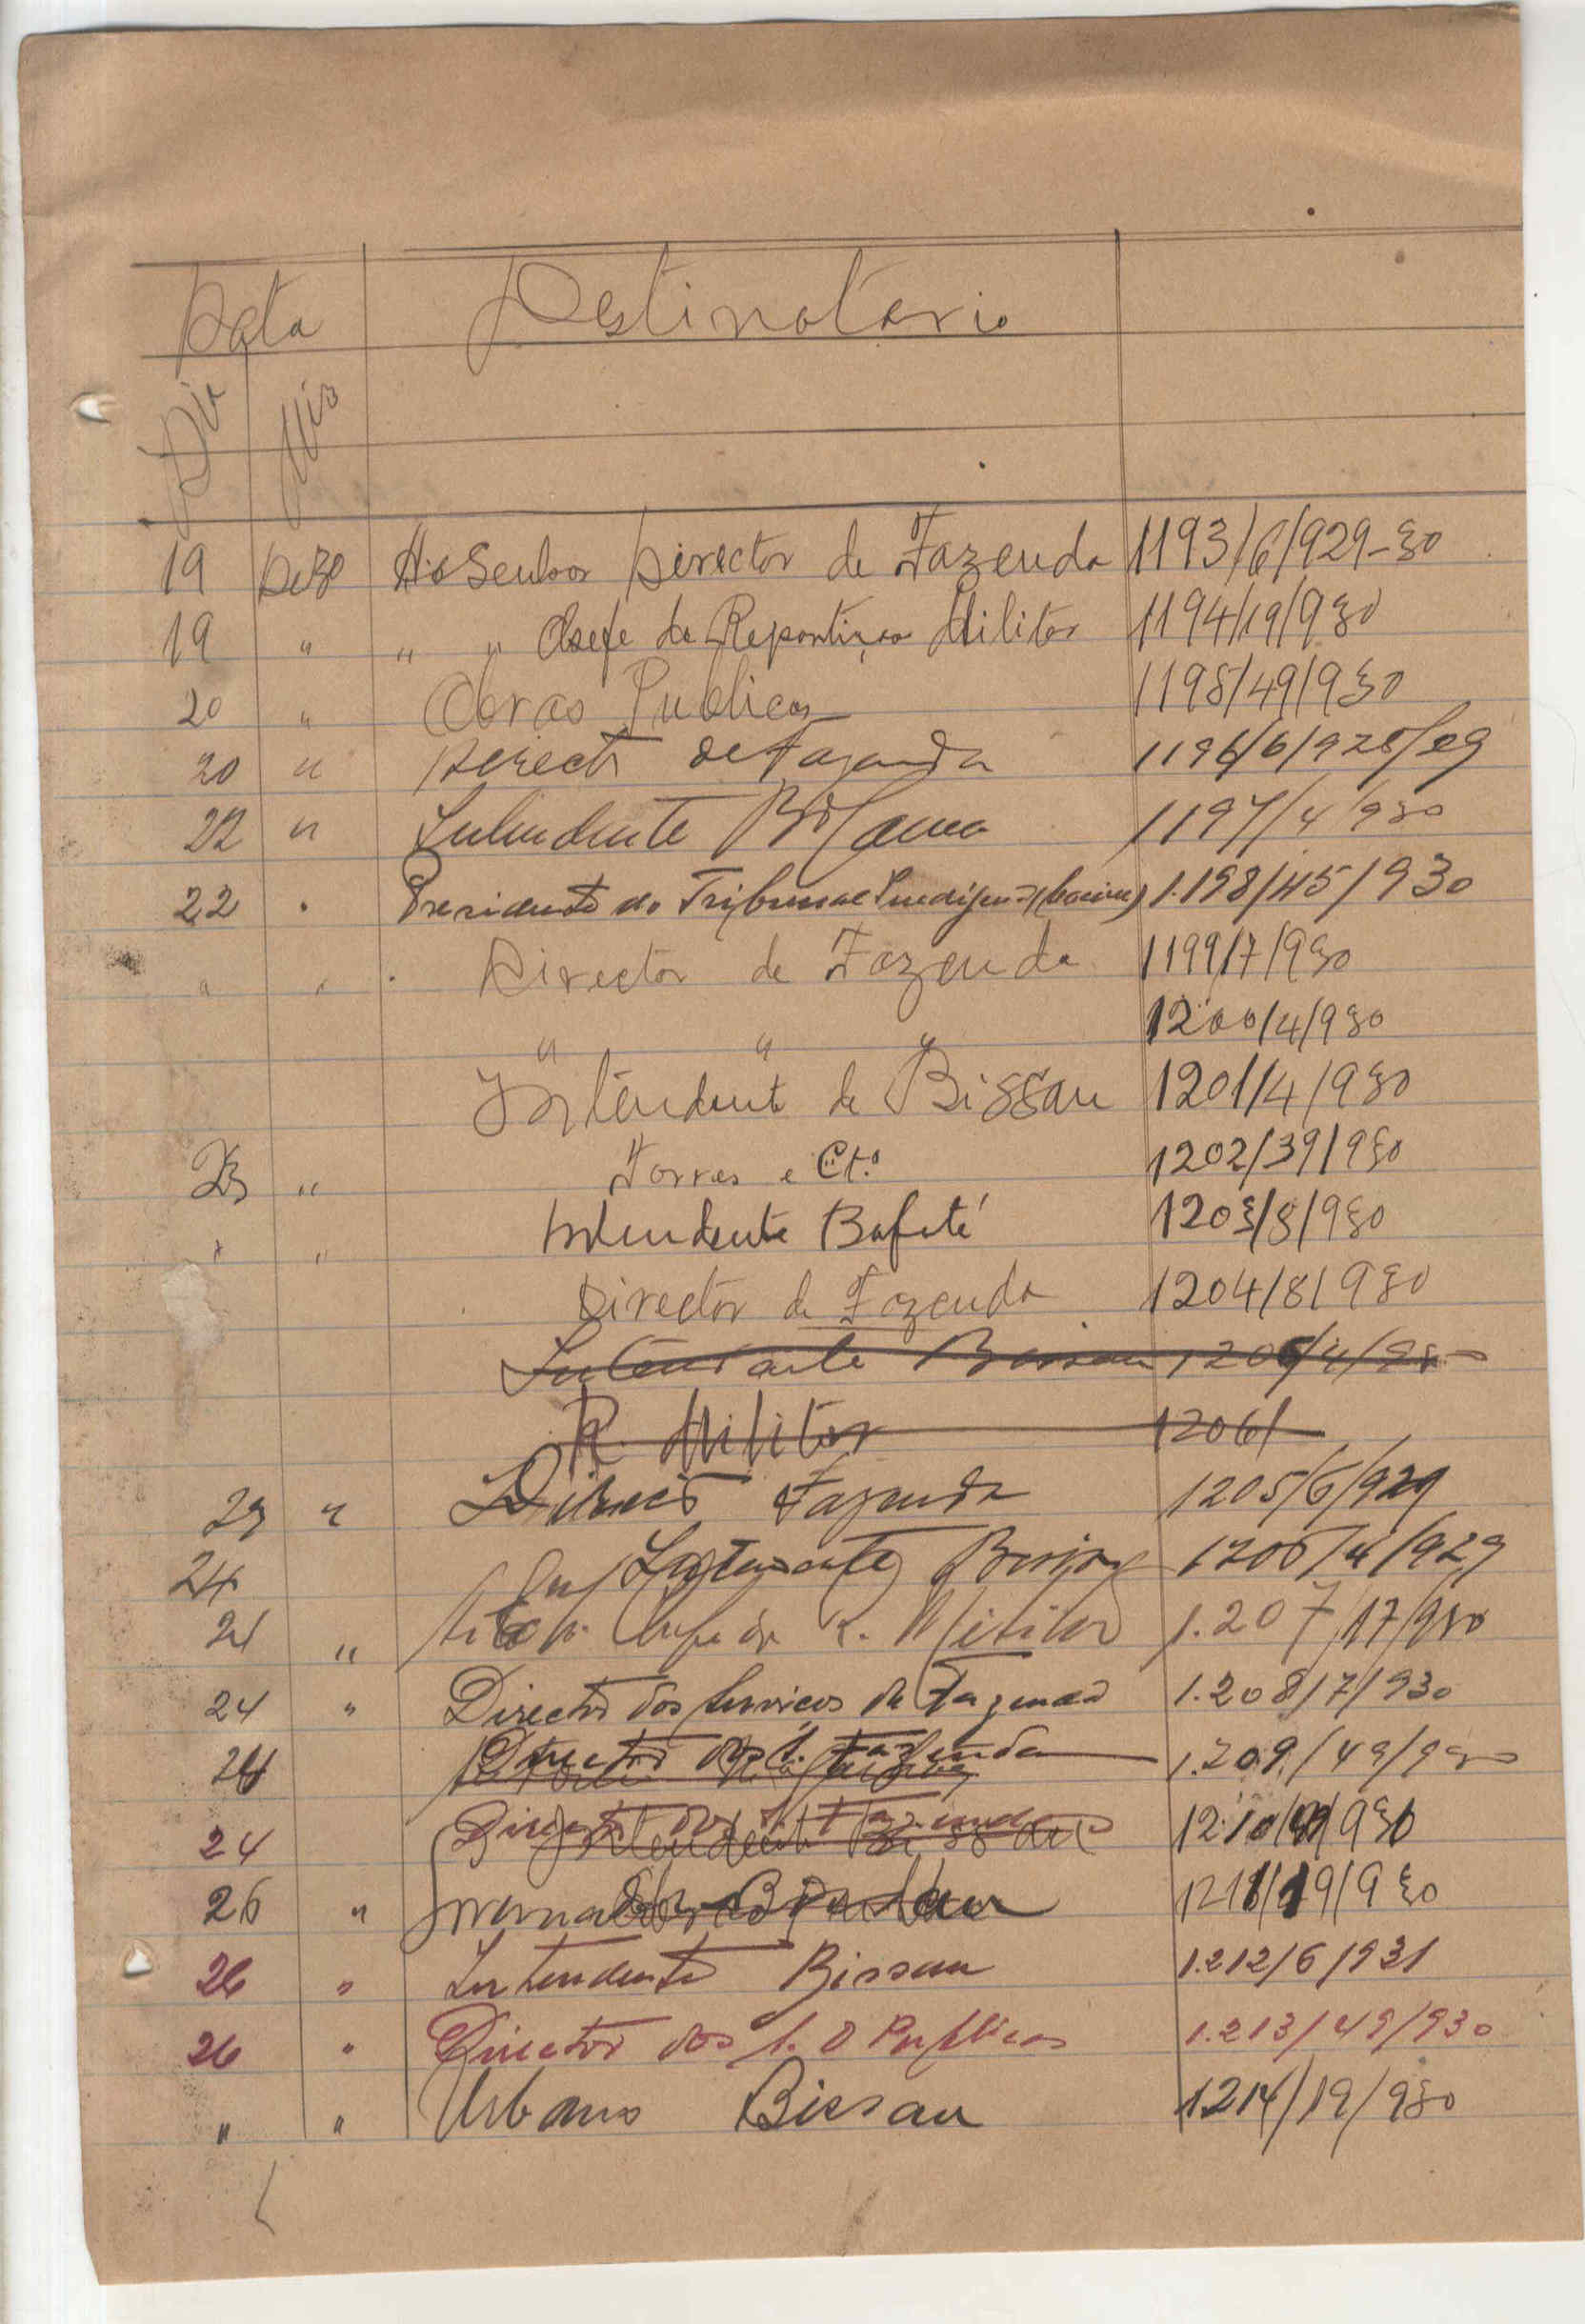 Data Destinatario
Dia Mês
19 Dezo Ao Senhor Director de Fazenda 1193/6/929-30
19 " " " Chefe da Repartiçao Militar 1194/19/930
20 " Obras Publicas 1195/49/930
20 " Director de Fazenda 1196/6/928/29
22 " Intendente Bolama 1197/4/930
22 " Presidente do Tribunal 1.198/45/930
" " Director de Fazenda 1199/7/930
" " " 1200/4/930
Intendente de Bissau 1201/4/930
23 " Torres e Ct.ª 1202/39/930
" " Intendente Bafatá 1203/8/930
Director de Fazenda 1204/8/930
Intendente Bissau
R. Militar 1206/
23 " Fazenda 1205/6/929
24 Intendente 1206/4/929
24 " Chefe da R. Militar 1.207/17/930
24 " Director dos Serviços de Fazenda 1.208/7/930
24 Director dos S. Fazenda 1.209/49/930
24 Intendente Bissau
26 "
26 " Intendente Bissau 1.212/6/931
26 " Director dos S. O Publicas 1.213/49/930
" " Urbano Bissau 1214/19/930